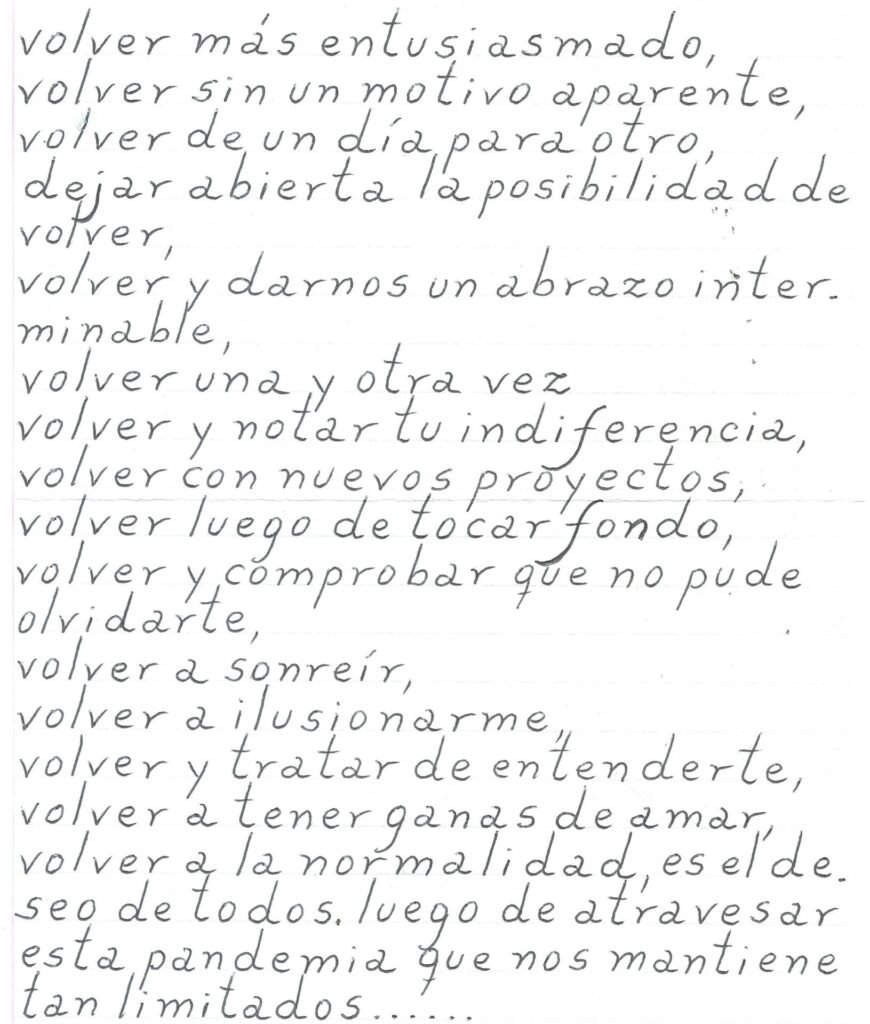 volver más entusiasmado,
volver sin un motivo aparente,
volver de un día para otro,
dejar abierta la posibilidad de
volver,
volver y darnos un abrazo inter-
minable,
volver una y otra vez
volver y notar tu indiferencia,
volver con nuevos proyectos,
volver luego de tocar fondo,
volver y comprobar que no pude
olvidarte,
volver a sonreír,
volver a ilusionarme,
volver y tratar de entenderte,
volver a tener ganas de amar,
volver a la normalidad, es el de-
seo de todos. luego de atravesar
esta pandemia que nos mantiene
tan limitados......